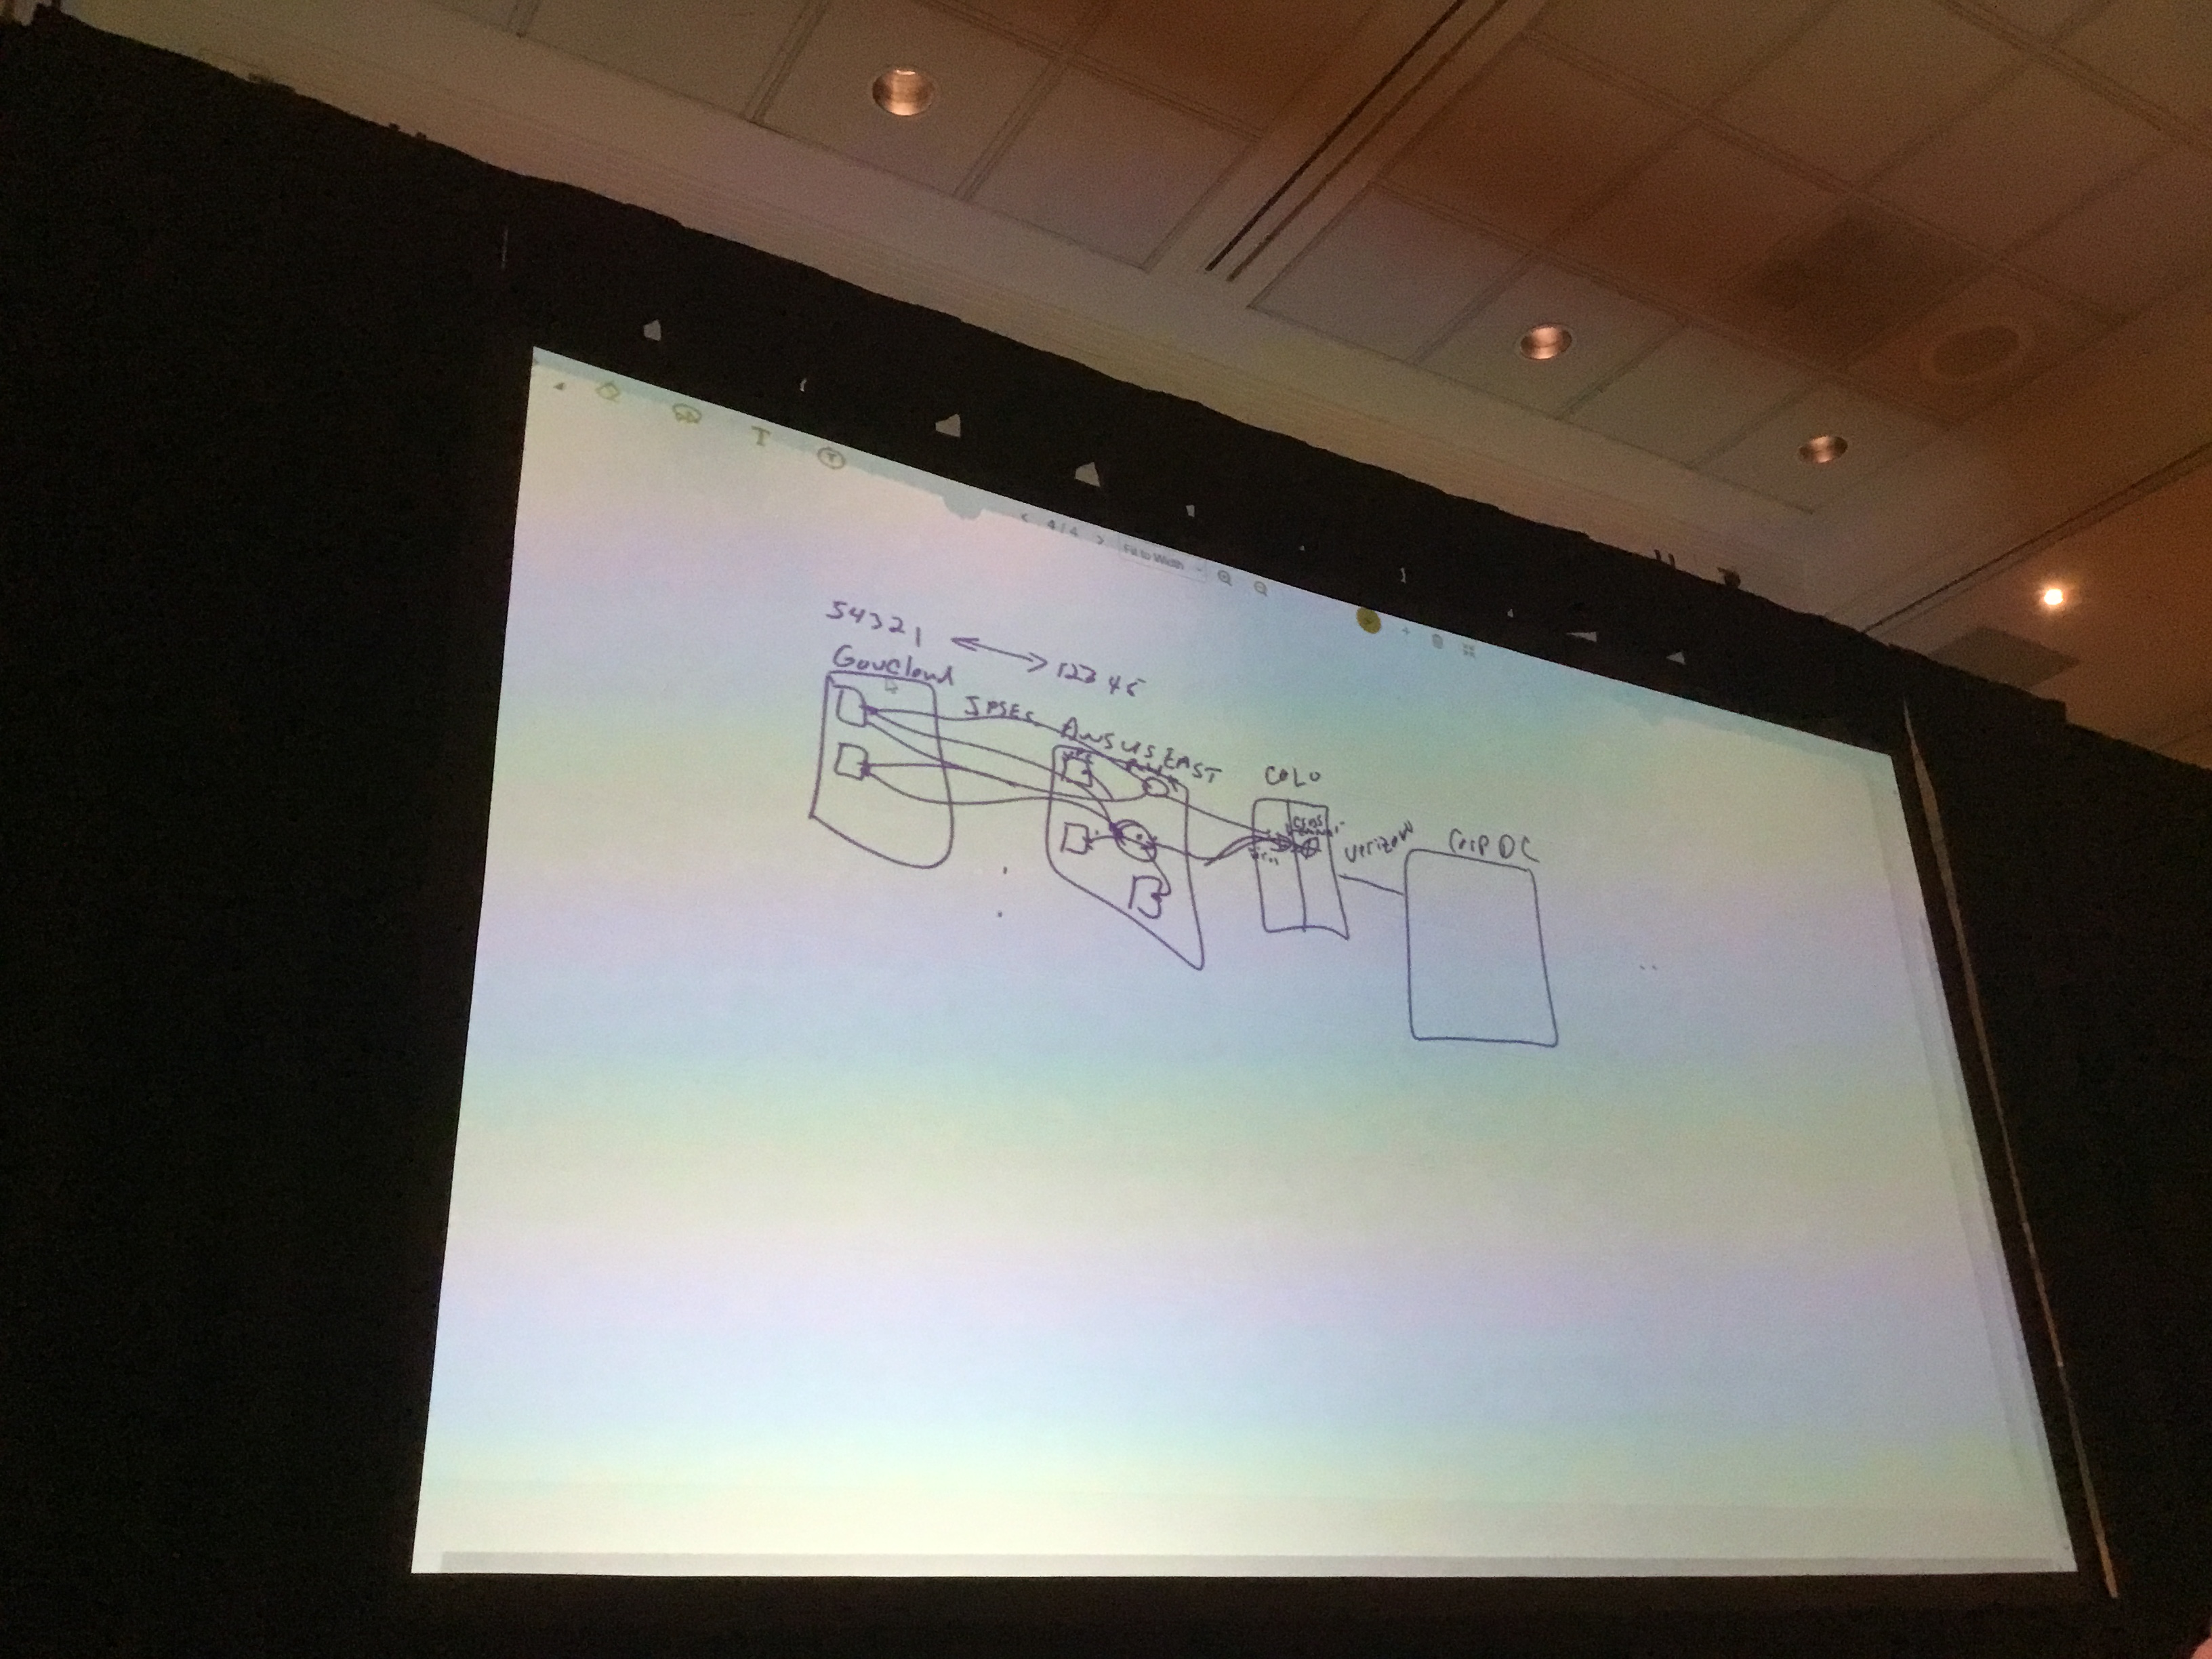 T
T
< 4/4 > Fit to Width
54321 <-> 12345
GovCloud
IPSEC
AWS US EAST
COLO
Verizon
Corp DC